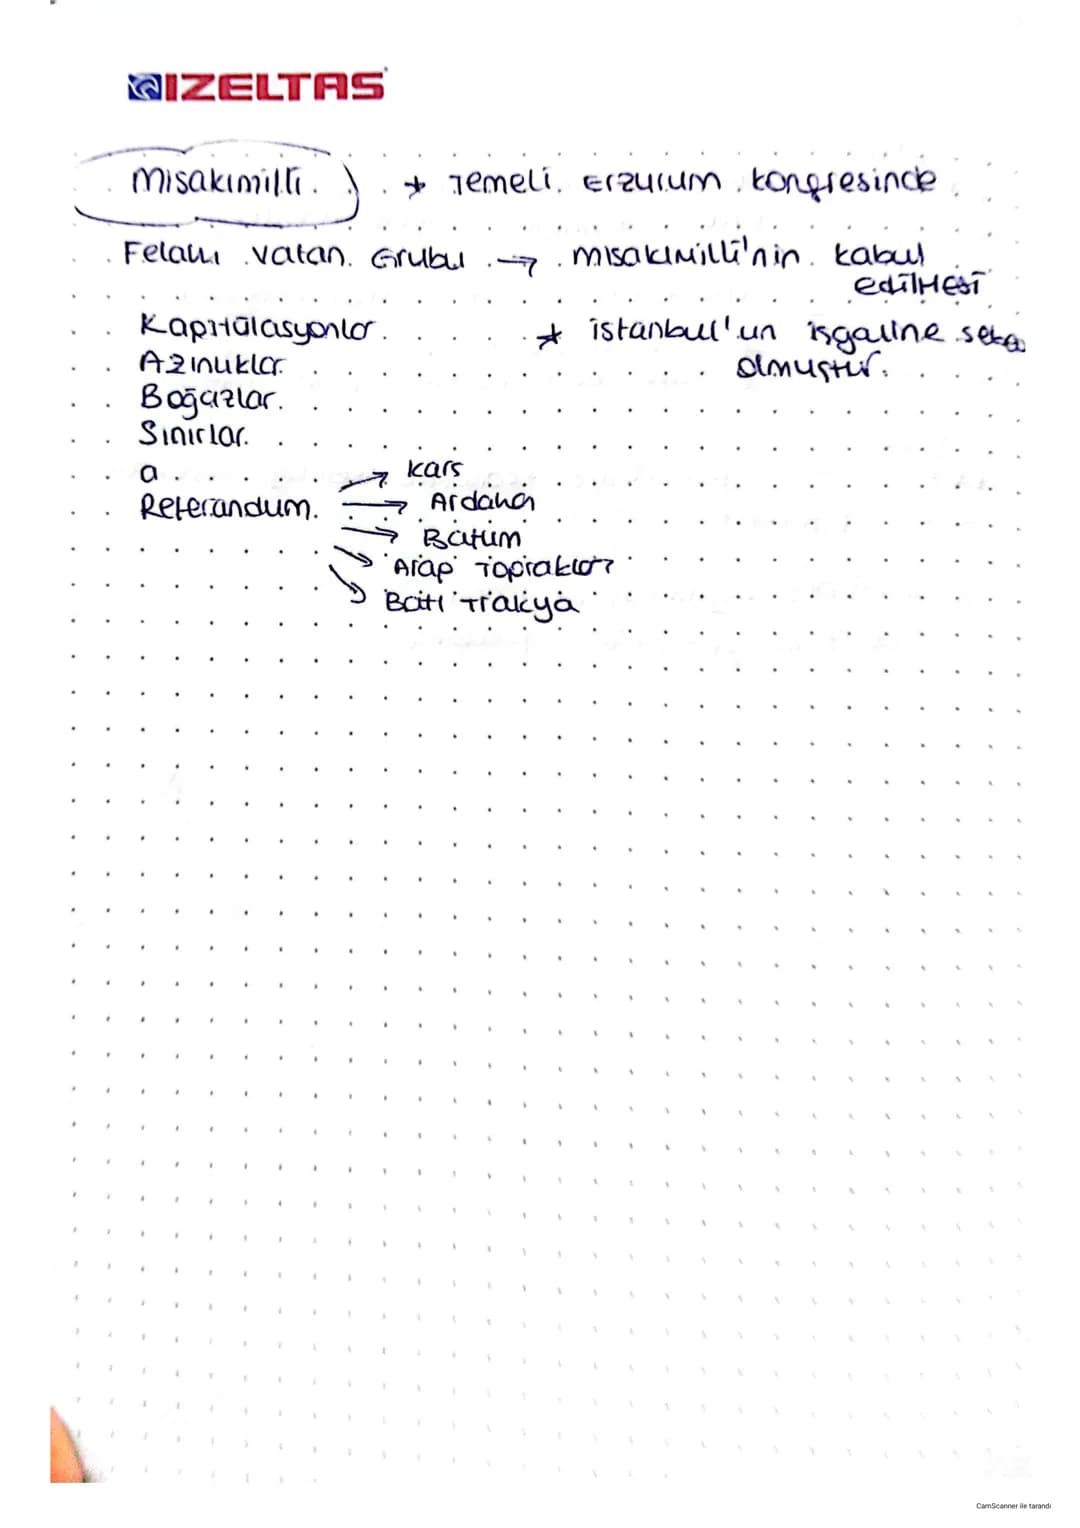 IZELTAS
Misakımilli * Temeli Erzurum kongresinde
Felahı vatan Grubu → misakımillî'nin kabul
edilmesi
Kapitülasyonlar * istanbul'un işgaline sebep
Azınlıklar olmuştur.
Boğazlar
Sınırlar
a → kars
Referandum → Ardahan
→ Batum
→ Arap Toprakları
→ Batı Trakya
CamScanner ile tarandı